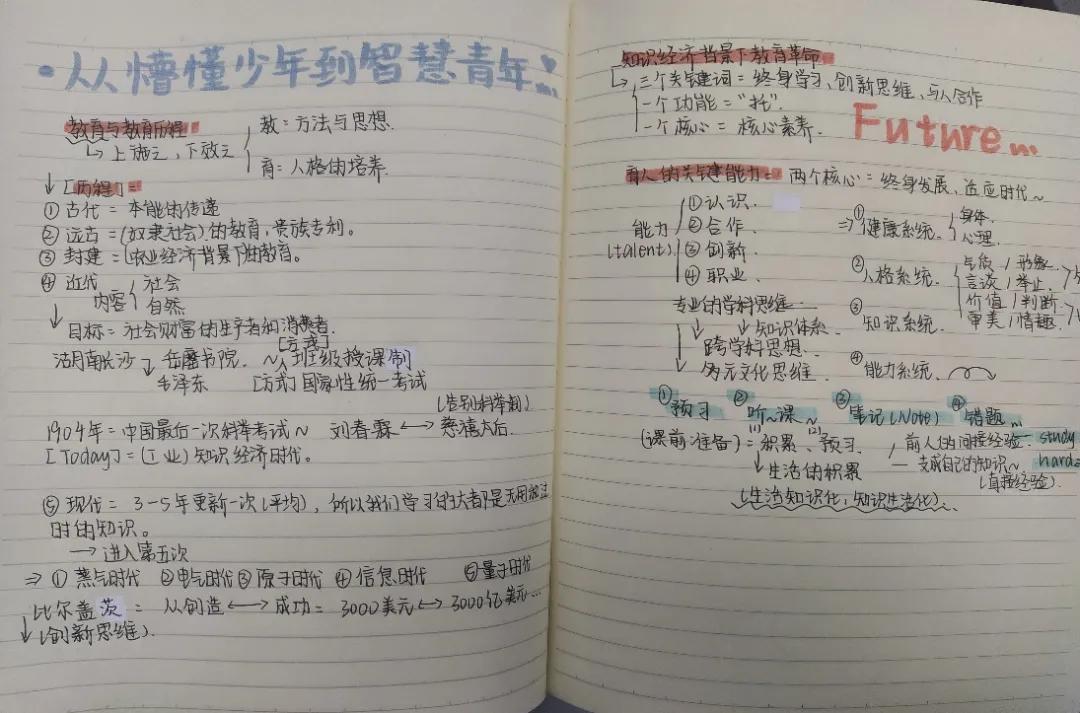 ·从懵懂少年到智慧青年...
教育与教育历程
↳上施之,下效之
教:方法与思想.
育:人格的培养.
↓[历程]=
①古代=本能的传递
②远古=(奴隶社会).的教育,贵族专利。
③封建=(农业经济背景下的教育。
④近代 社会
内容 自然
↓目标=社会财富的生产者和消费者.
[方式]
湖南长沙↘岳麓书院. ~班级授课制
毛泽东 [方式]国家性统一考试
(告别科举制)
1904年=中国最后一次科举考试~ 刘春霖⟷慈禧太后.
[Today]=(工业)知识经济时代。
⑤现代=3-5年更新一次(平均),所以我们学习的大都是无用的过
时的知识。
→进入第五次
⇒①蒸气时代 ②电气时代③原子时代 ④信息时代 ⑤量子时代
比尔盖茨=从创造⟷成功=3000美元⟷3000亿美元...
↓(创新思维).
知识经济背景下教育革命
↳三个关键词=终身学习、创新思维、与人合作
一个功能="托".
一个核心=核心素养.
Future...
育人的关键能力= 两个核心=终身发展、适应时代~
能力
(talent)
①认识.
②合作.
③创新.
④职业.
⇒①健康系统. 身体.
心理.
②人格系统. 气质/形象.
言谈/举止.
价值/判断.
审美/情趣.
③知识系统.
④能力系统.
专业的学科思维.
↓知识体系.
跨学科思想.
多元文化思维.
①预习 ②听~课~ ③笔记(Note) ④错题...
(课前准备)=(1)积累、(2)预习.
↓生活的积累
(生活知识化,知识生活化).
前人的间接经验.— study
—变成自己的知识~ hard
(直接经验).